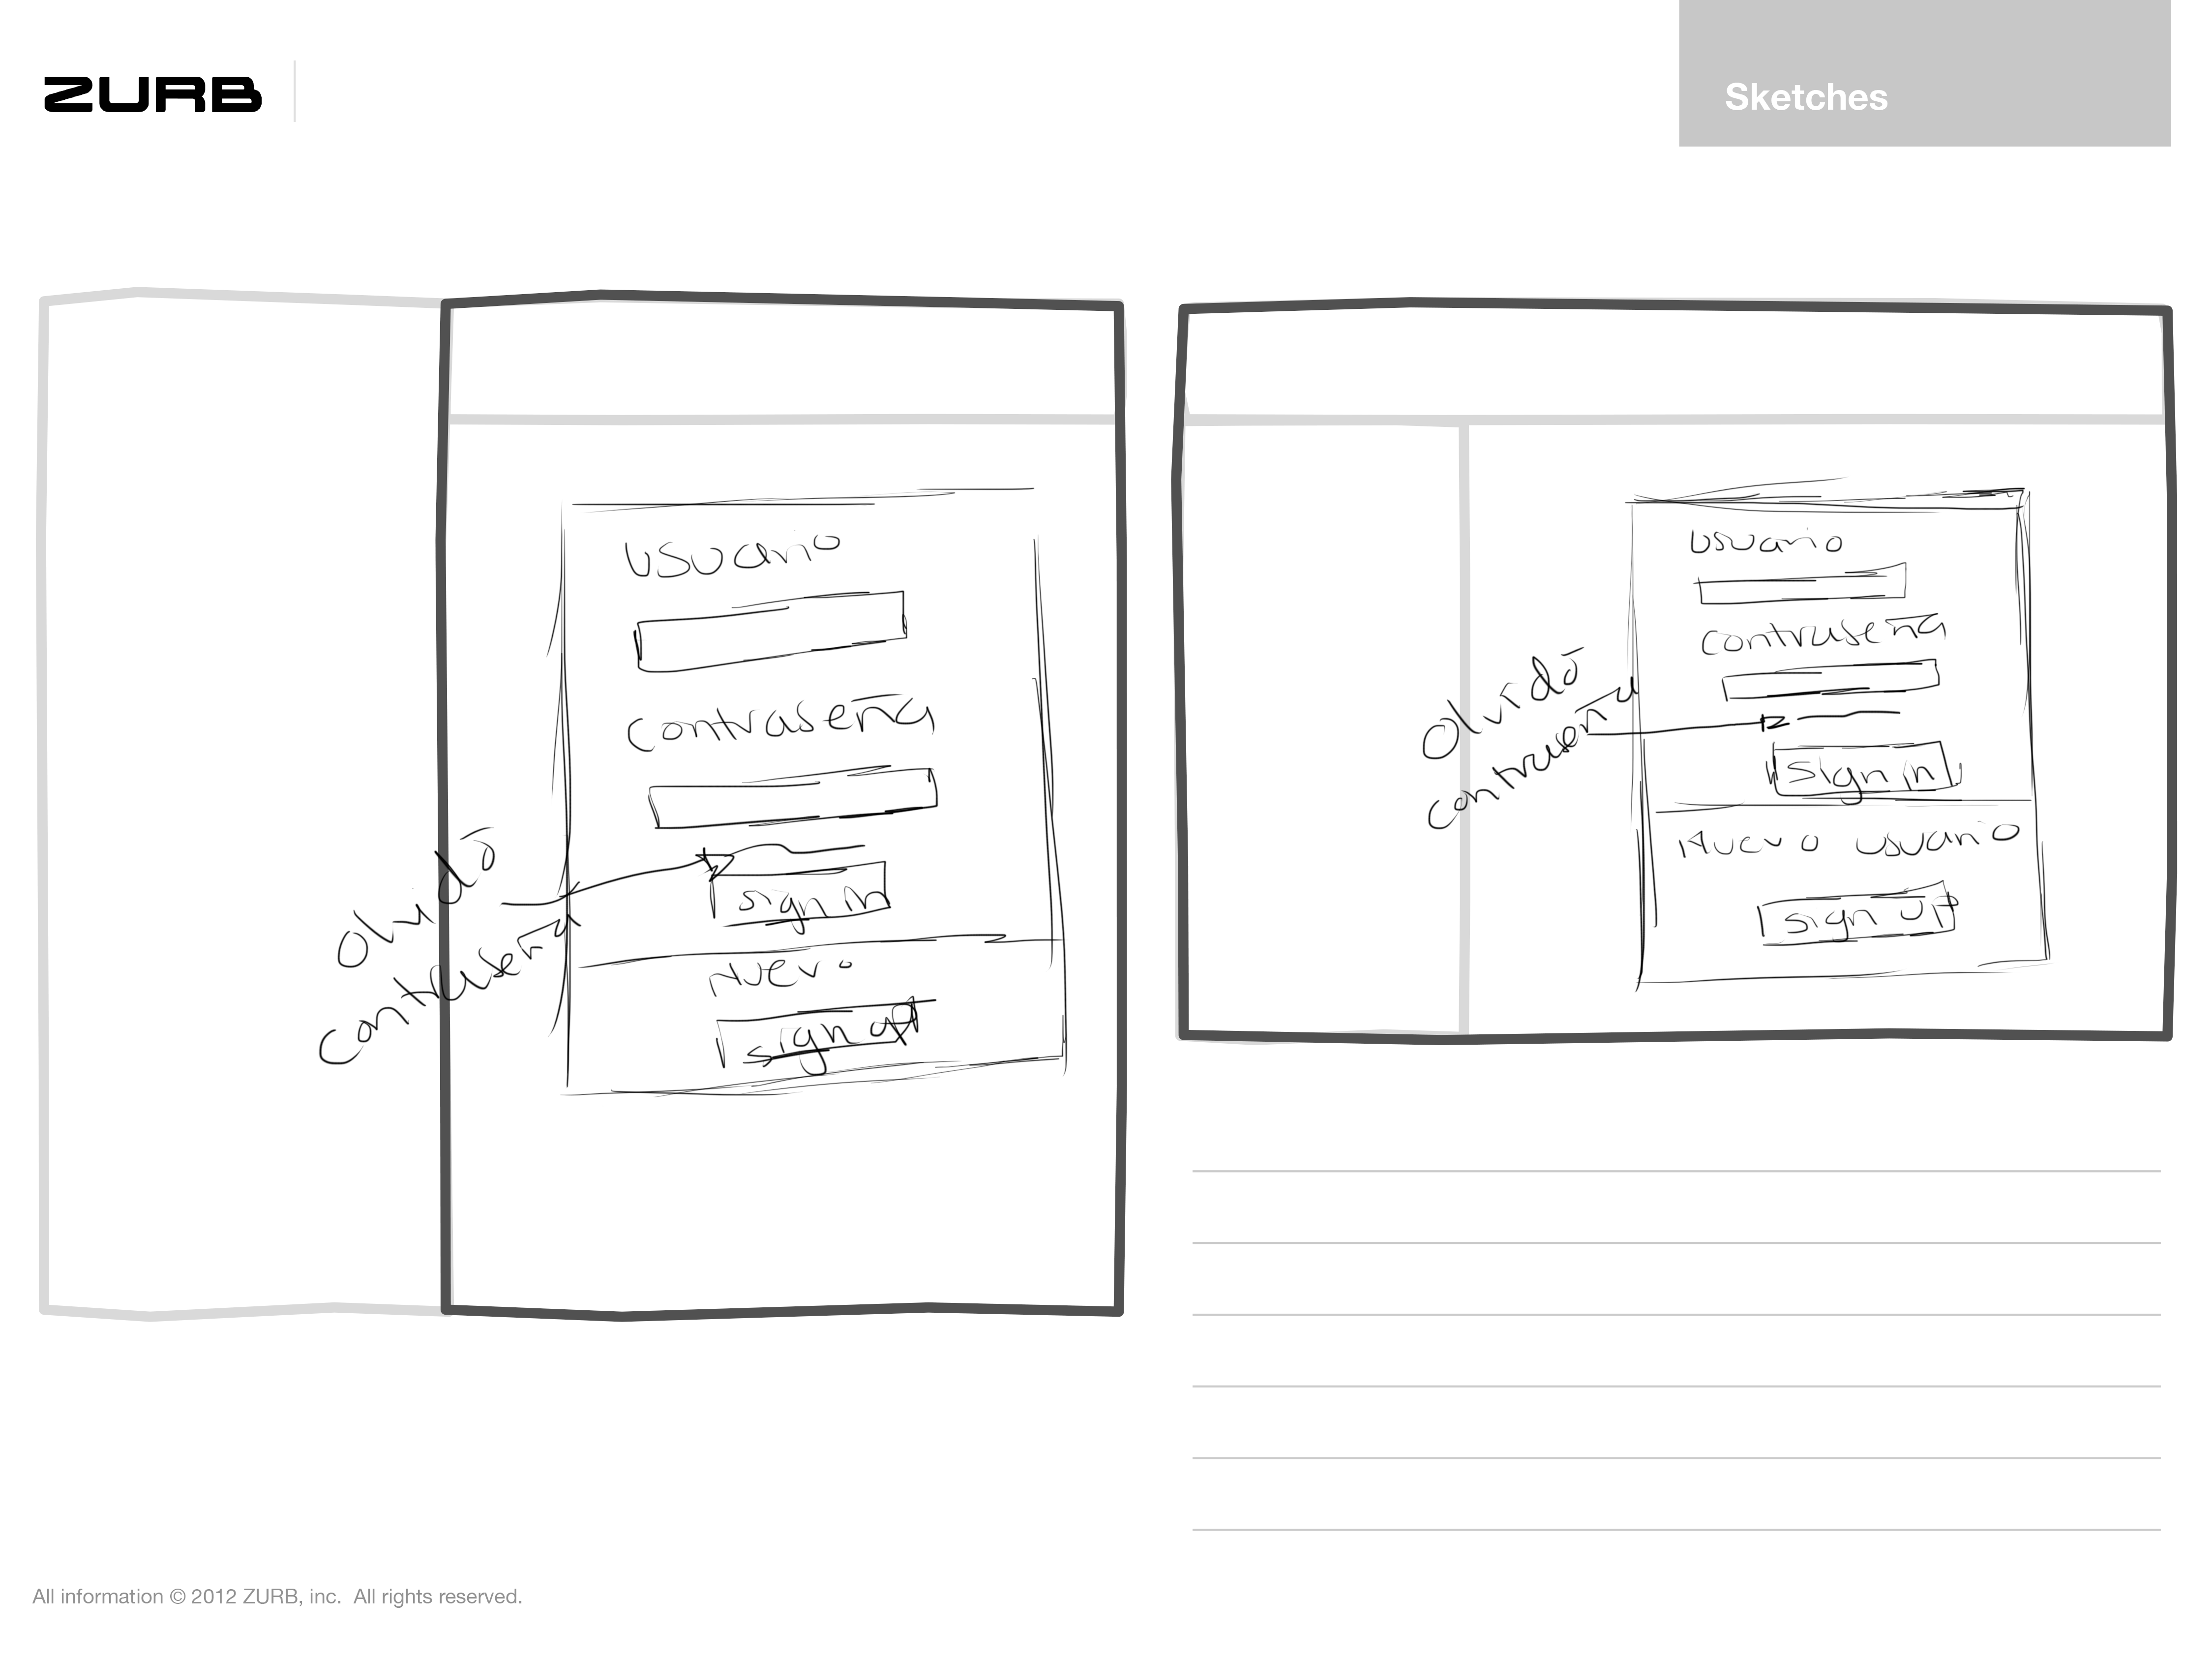 ZURB
Sketches
Usuario
Contraseña
Olvidó
Contraseña
sign in
Nuevo
sign up
Usuario
Contraseña
Olvidó
Contraseña
Sign in
Nuevo usuario
sign up
All information © 2012 ZURB, inc. All rights reserved.